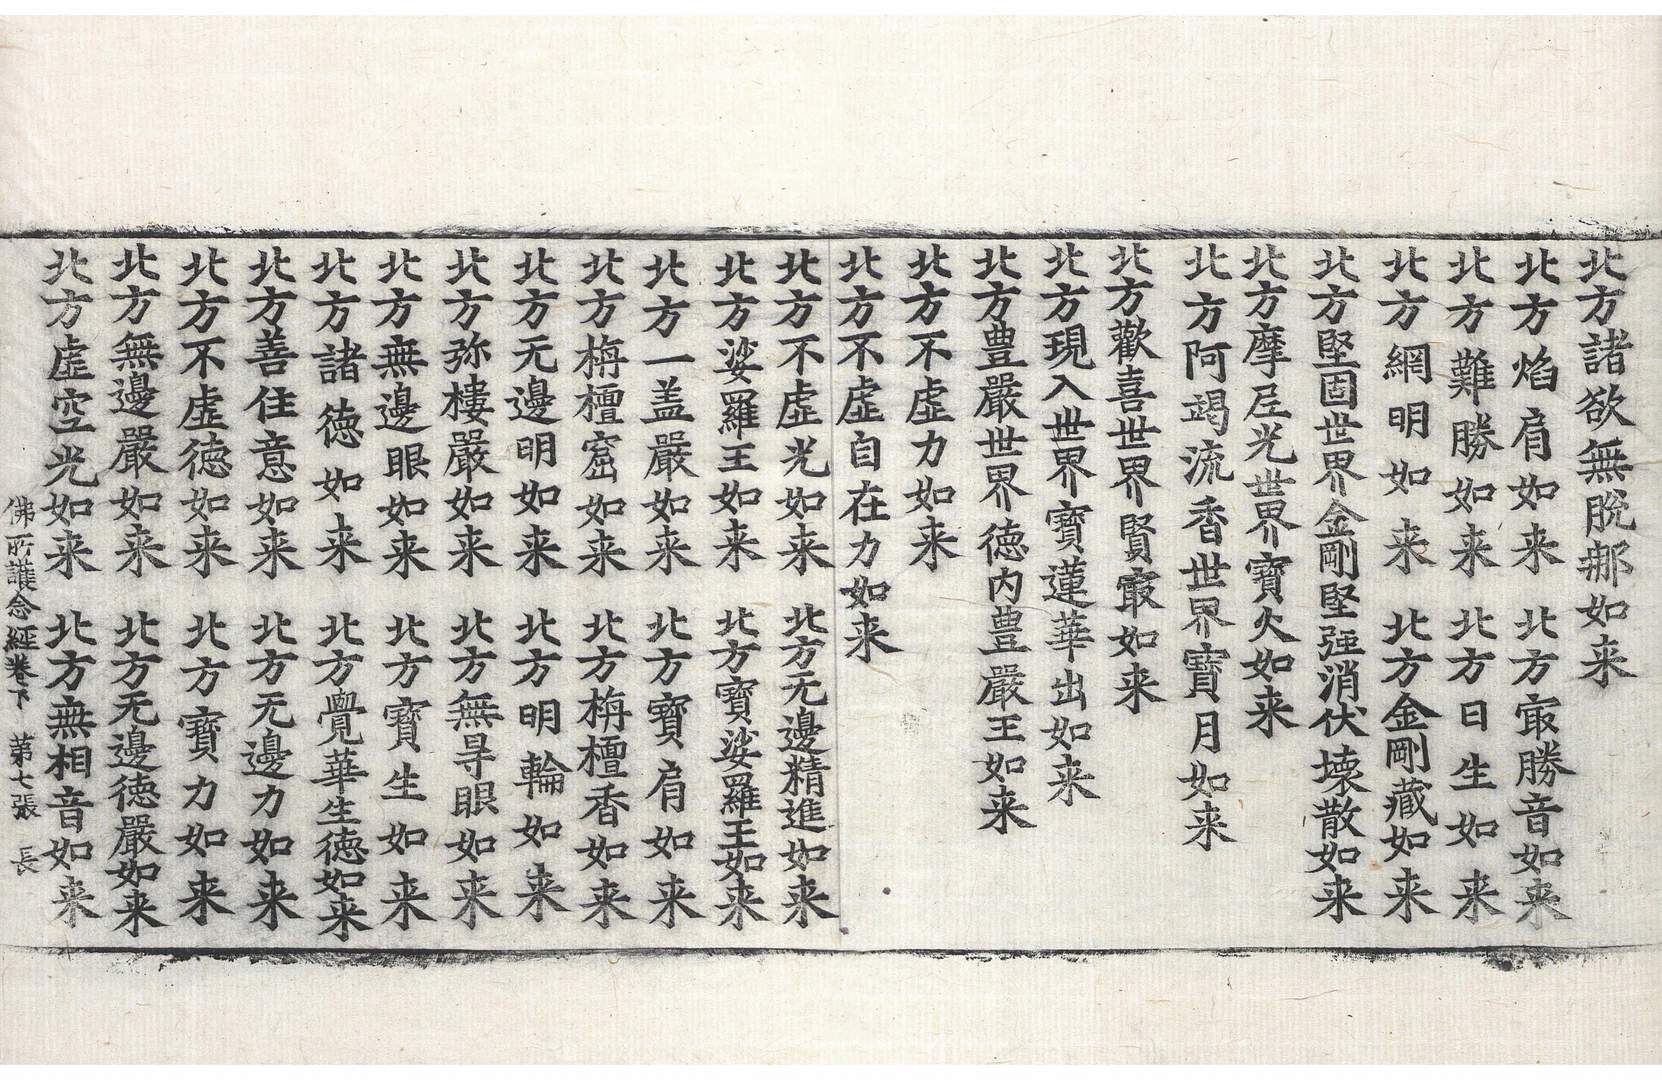 北方諸欲無脫郍如来
北方焰肩如来　北方㝡勝音如来
北方難勝如来　北方日生如来
北方網明如来　北方金剛藏如来
北方堅固世界金剛堅强消伏壞散如来
北方摩尼光世界寶火如来
北方阿竭流香世界寶月如来
北方歡喜世界賢㝡如来
北方現入世界寶蓮華出如来
北方豊嚴世界德内豊嚴王如来
北方不虛力如来
北方不虛自在力如来
北方不虛光如来　北方无邊精進如来
北方娑羅王如来　北方寶娑羅王如来
北方一盖嚴如来　北方寶肩如来
北方栴檀窟如来　北方栴檀香如来
北方无邊明如来　北方明輪如来
北方弥樓嚴如来　北方無㝵眼如来
北方無邊眼如来　北方寶生如来
北方諸德如来　北方覺華生德如来
北方善住意如来　北方无邊力如来
北方不虛德如来　北方寶力如来
北方無邊嚴如来　北方无邊德嚴如来
北方虛空光如来　北方無相音如来
佛所護念經卷下　第七張　長